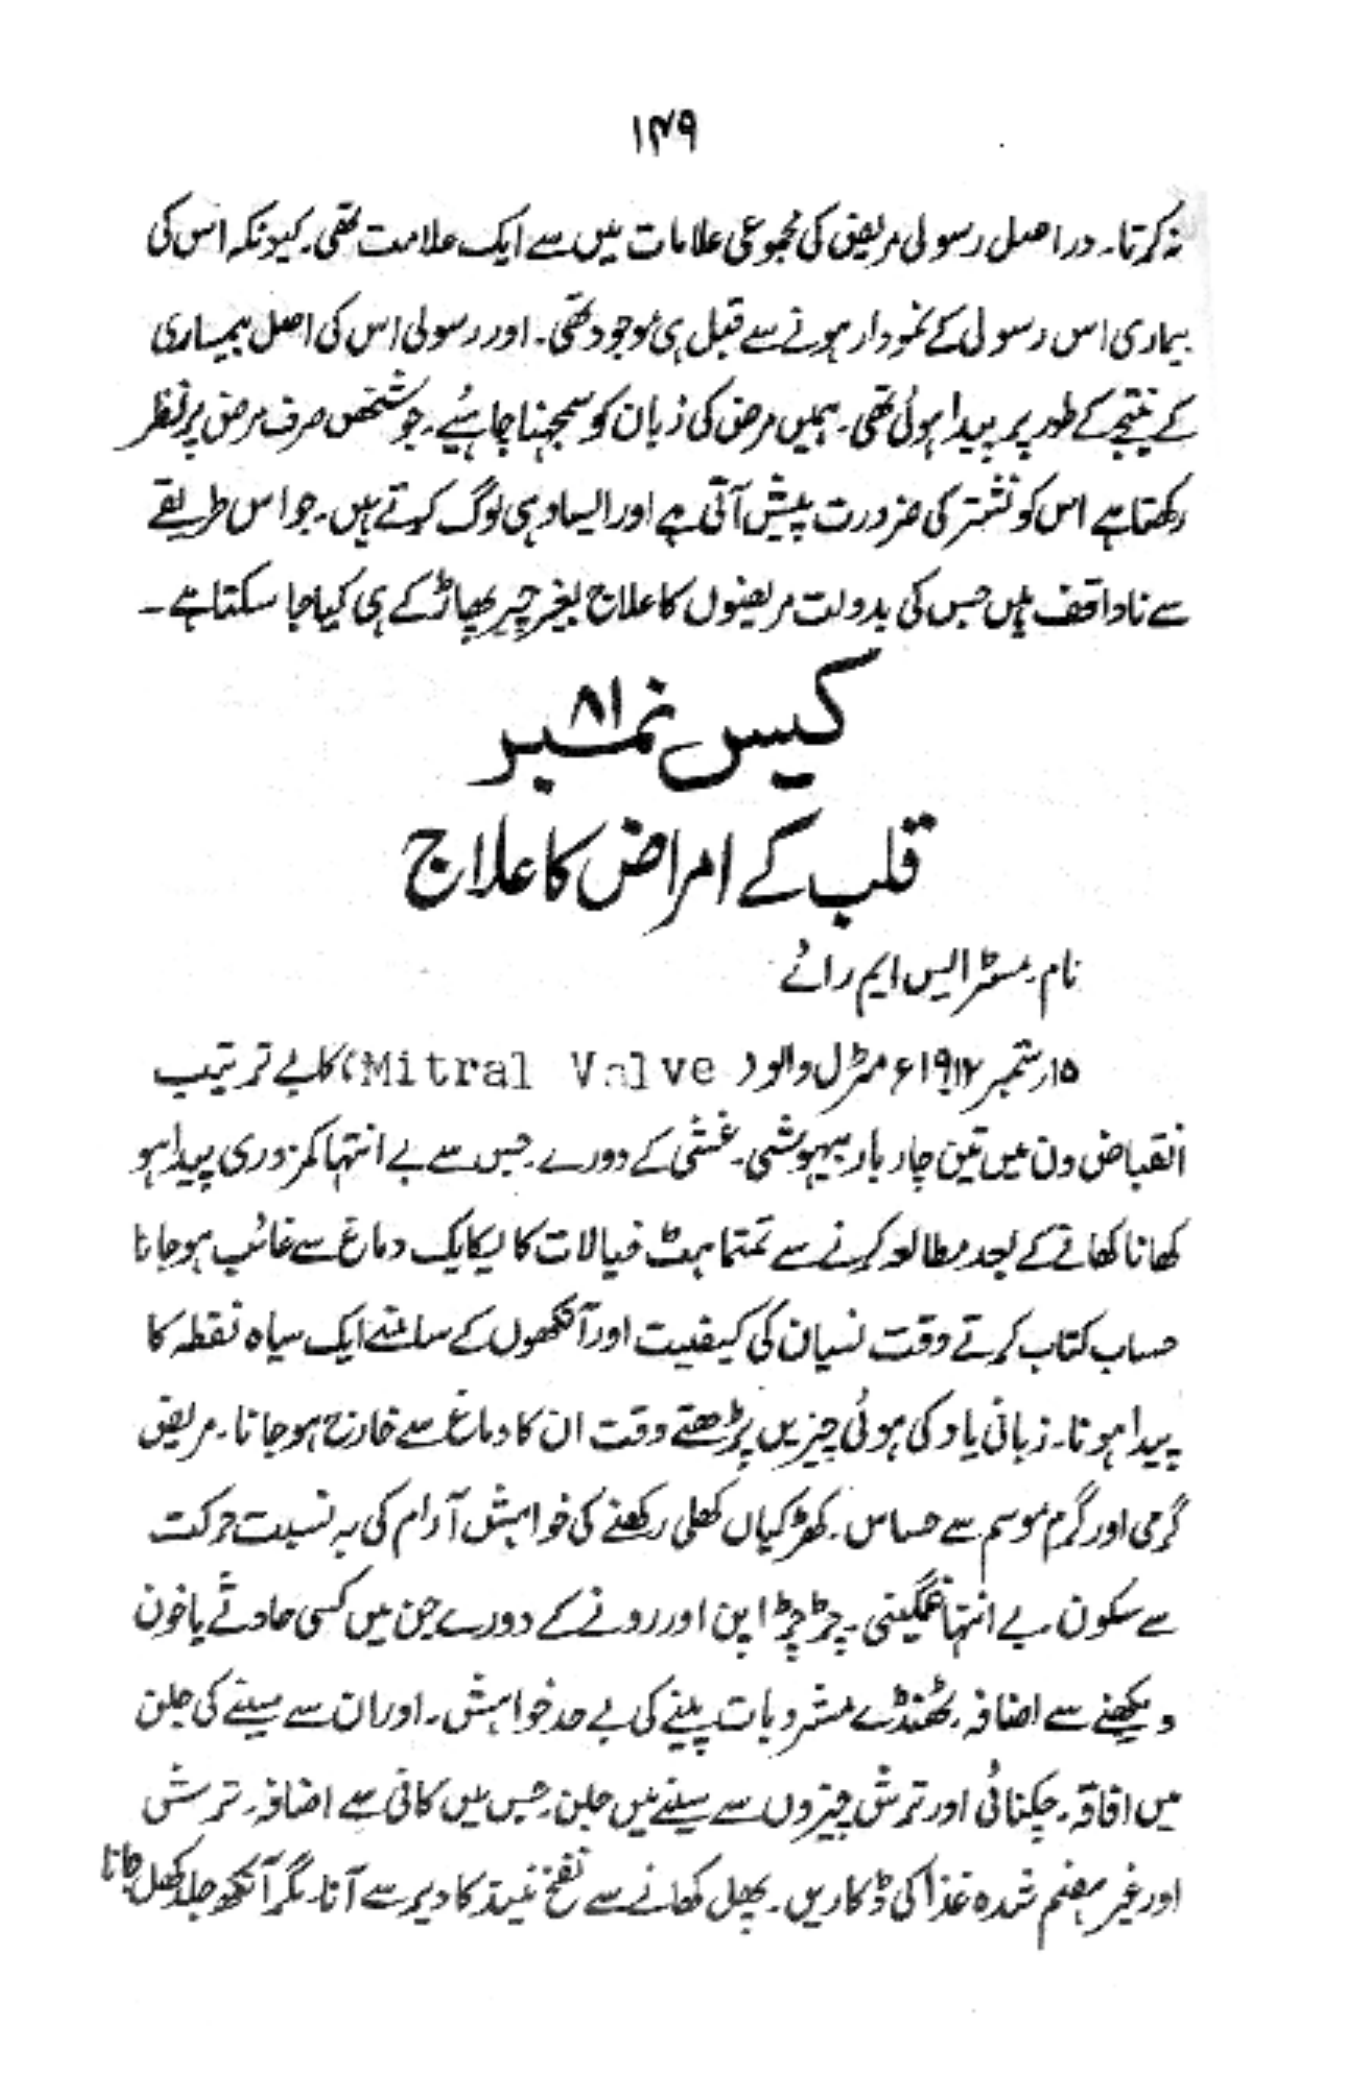 ۱۴۹
نہ کرتا۔ در اصل رسولی مریض کی مجموعی علامات میں سے ایک علامت تھی۔ کیونکہ اس کی
بیماری اس رسولی کے نمودار ہونے سے قبل ہی موجود تھی۔ اور رسولی اس کی اصل بیماری
کے نتیجے کے طور پر پیدا ہوئی تھی۔ ہمیں مرض کی زبان کو سمجھنا چاہئیے۔ جو شخص صرف مرض پر نظر
رکھتا ہے اس کو نشتر کی ضرورت پیش آتی ہے اور ایسا وہی لوگ کرتے ہیں۔ جو اس طریقے
سے ناواقف ہیں جس کی بدولت مریضوں کا علاج بغیر چیر پھاڑ کے ہی کیا جا سکتا ہے۔
کیس نمبر ۸۱
قلب کے امراض کا علاج
نام۔ مسٹر ایس ایم رائے
۱۵ ستمبر ۱۹۱۲ء مٹرل والو (Mitral Valve) کا بے ترتیب
انقباض دن میں تین چار بار بیہوشی۔ غشی کے دورے۔ جس سے بے انتہا کمزوری پیدا ہو
کھانا کھانے کے بعد مطالعہ کرنے سے تمتماہٹ خیالات کا یکایک دماغ سے غائب ہو جانا
حساب کتاب کرتے وقت نسیان کی کیفیت اور آنکھوں کے سامنے ایک سیاہ نقطہ کا
پیدا ہونا۔ زبانی یاد کی ہوئی چیزیں پڑھتے وقت ان کا دماغ سے خارج ہو جانا۔ مریض
گرمی اور گرم موسم سے حساس۔ کھڑکیاں کھلی رکھنے کی خواہش آرام کی بہ نسبت حرکت
سے سکون۔ بے انتہا غمگینی۔ چڑچڑا پن اور رونے کے دورے جن میں کسی حادثے یا خون
دیکھنے سے اضافہ۔ ٹھنڈے مشروبات پینے کی بے حد خواہش۔ اور ان سے سینے کی جلن
میں افاقہ۔ چکنائی اور ترش چیزوں سے سینے میں جلن۔ جس میں کافی سے اضافہ۔ ترش
اور غیر ہضم شدہ غذا کی ڈکاریں۔ پھل کھانے سے نفخ نیند کا دیر سے آنا۔ مگر آنکھ جلد کھل جانا